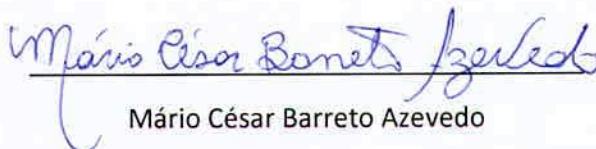 Mário César Barreto Azevedo
Mário César Barreto Azevedo